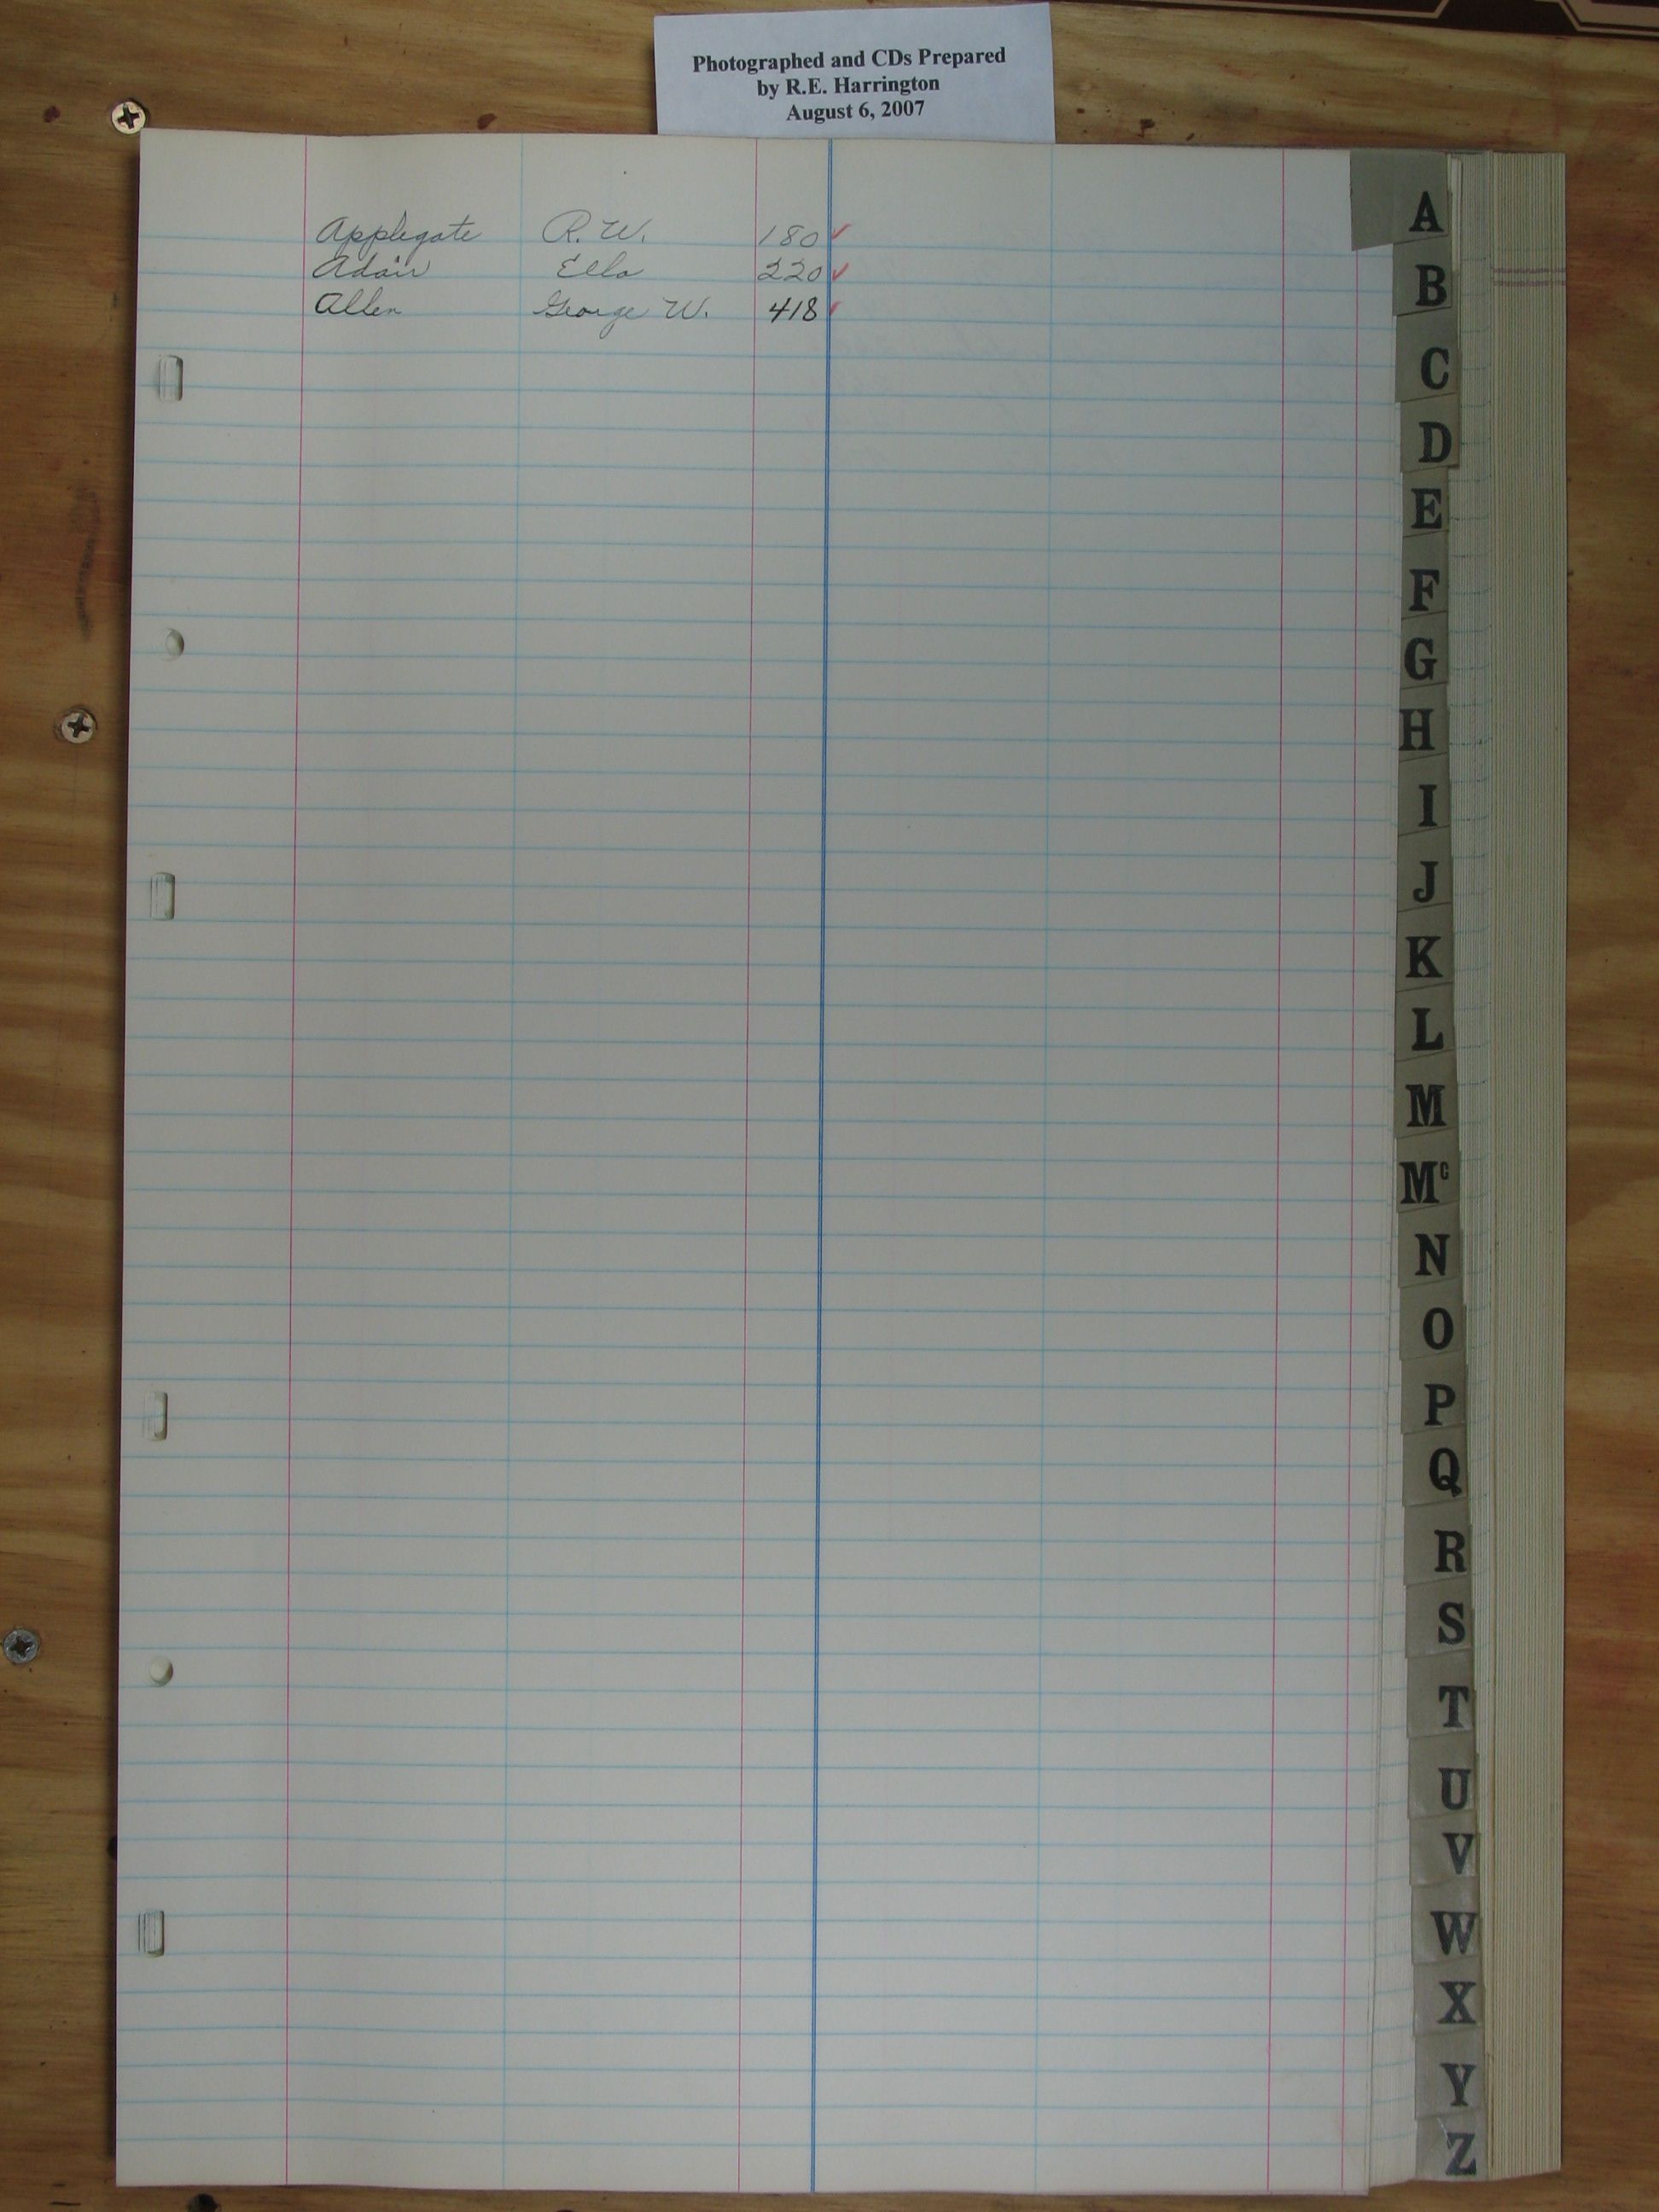 Photographed and CDs Prepared
by R.E. Harrington
August 6, 2007
Applegate R. W. 180 ✓
Adair Ella 220 ✓
Allen George W. 418 ✓
A
B
C
D
E
F
G
H
I
J
K
L
M
Mc
N
O
P
Q
R
S
T
U
V
W
X
Y
Z